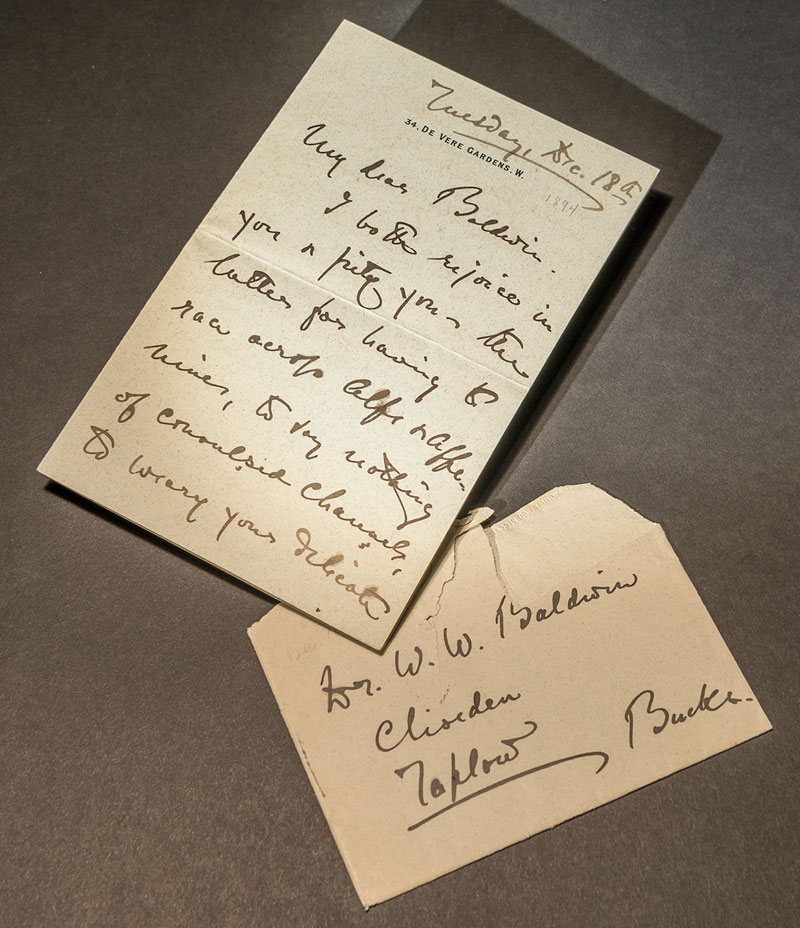 Tuesday, Dec. 18th
34, DE VERE GARDENS. W.
1894
My dear Baldwin.
I both rejoice in
you & pity you – the
latter for having to
race across Alps & Appe-
nines, to say nothing
of convulsed channels,
to weary your delicate
Dr. W. W. Baldwin
Cliveden
Taplow Bucks.